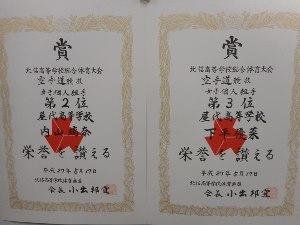 賞
北信高等学校総合体育大会
空手道競技
女子個人組手
第2位
屋代高等学校
内山
栄誉を讃える
平成29年5月19日
北信高等学校体育連盟
会長 小出邦
賞
北信高等学校総合体育大会
空手道競技
女子個人組手
第3位
屋代高等学校
下平
栄誉を讃える
平成29年5月19日
北信高等学校体育連盟
会長 小出邦